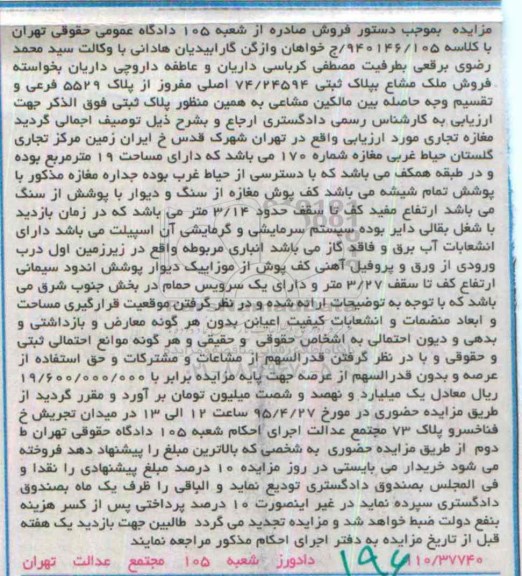 مزایده بموجب دستور فروش صادره از شعبه ۱۰۵ دادگاه عمومی حقوقی تهران
با کلاسه ۹۴۰۱۴۶/۱۰۵/ج خواهان وازگن گارابیدیان هادانی با وکالت سید محمد
رضوی برقعی بطرفیت مصطفی کرباسی داریان و عاطفه داروچی داریان بخواسته
فروش ملک مشاع بپلاک ثبتی ۷۴/۲۴۵۹۴ اصلی مفروز از پلاک ۵۵۲۹ فرعی و
تقسیم وجه حاصله بین مالکین مشاعی به همین منظور پلاک ثبتی فوق الذکر جهت
ارزیابی به کارشناس رسمی دادگستری ارجاع و بشرح ذیل توصیف اجمالی گردید
مغازه تجاری مورد ارزیابی واقع در تهران شهرک قدس خ ایران زمین مرکز تجاری
گلستان حیاط غربی مغازه شماره ۱۷۰ می باشد که دارای مساحت ۱۹ مترمربع بوده
و در طبقه همکف می باشد که با دسترسی از حیاط غرب بوده جداره مغازه مذکور با
پوشش تمام شیشه می باشد کف پوش مغازه از سنگ و دیوار با پوشش از سنگ
می باشد ارتفاع مفید کف تا سقف حدود ۳/۱۴ متر می باشد که در زمان بازدید
با شغل بقالی دایر بوده سیستم سرمایشی و گرمایشی آن اسپیلت می باشد دارای
انشعابات آب برق و فاقد گاز می باشد انباری مربوطه واقع در زیرزمین اول درب
ورودی از ورق و پروفیل آهنی کف پوش از موزاییک دیوار پوشش اندود سیمانی
ارتفاع کف تا سقف ۳/۲۷ متر و دارای یک سرویس حمام در بخش جنوب شرق می
باشد که با توجه به توضیحات ارائه شده و در نظر گرفتن موقعیت قرارگیری مساحت
و ابعاد منضمات و انشعابات کیفیت اعیانی بدون هر گونه معارض و بازداشتی و
بدهی و دیون احتمالی به اشخاص حقوقی و حقیقی و هر گونه موانع احتمالی ثبتی
و حقوقی و با در نظر گرفتن قدرالسهم از مشاعات و مشترکات و حق استفاده از
عرصه و بدون قدرالسهم از عرصه جهت پایه مزایده برابر با ۱۹/۶۰۰/۰۰۰/۰۰۰
ریال معادل یک میلیارد و نهصد و شصت میلیون تومان بر آورد و مقرر گردید از
طریق مزایده حضوری در مورخ ۹۵/۴/۲۷ ساعت ۱۲ الی ۱۳ در میدان تجریش خ
فناخسرو پلاک ۷۳ مجتمع عدالت اجرای احکام شعبه ۱۰۵ دادگاه حقوقی تهران ط
دوم از طریق مزایده حضوری به شخصی که بالاترین مبلغ را پیشنهاد دهد فروخته
می شود خریدار می بایستی در روز مزایده ۱۰ درصد مبلغ پیشنهادی را نقدا و
فی المجلس بصندوق دادگستری تودیع نماید و الباقی را ظرف یک ماه بصندوق
دادگستری سپرده نماید در غیر اینصورت ۱۰ درصد پرداختی پس از کسر هزینه
بنفع دولت ضبط خواهد شد و مزایده تجدید می گردد طالبین جهت بازدید یک هفته
قبل از تاریخ مزایده به دفتر اجرای احکام مذکور مراجعه نمایند
۱۱۰/۳۷۷۴۰ دادورز شعبه ۱۰۵ مجتمع عدالت تهران